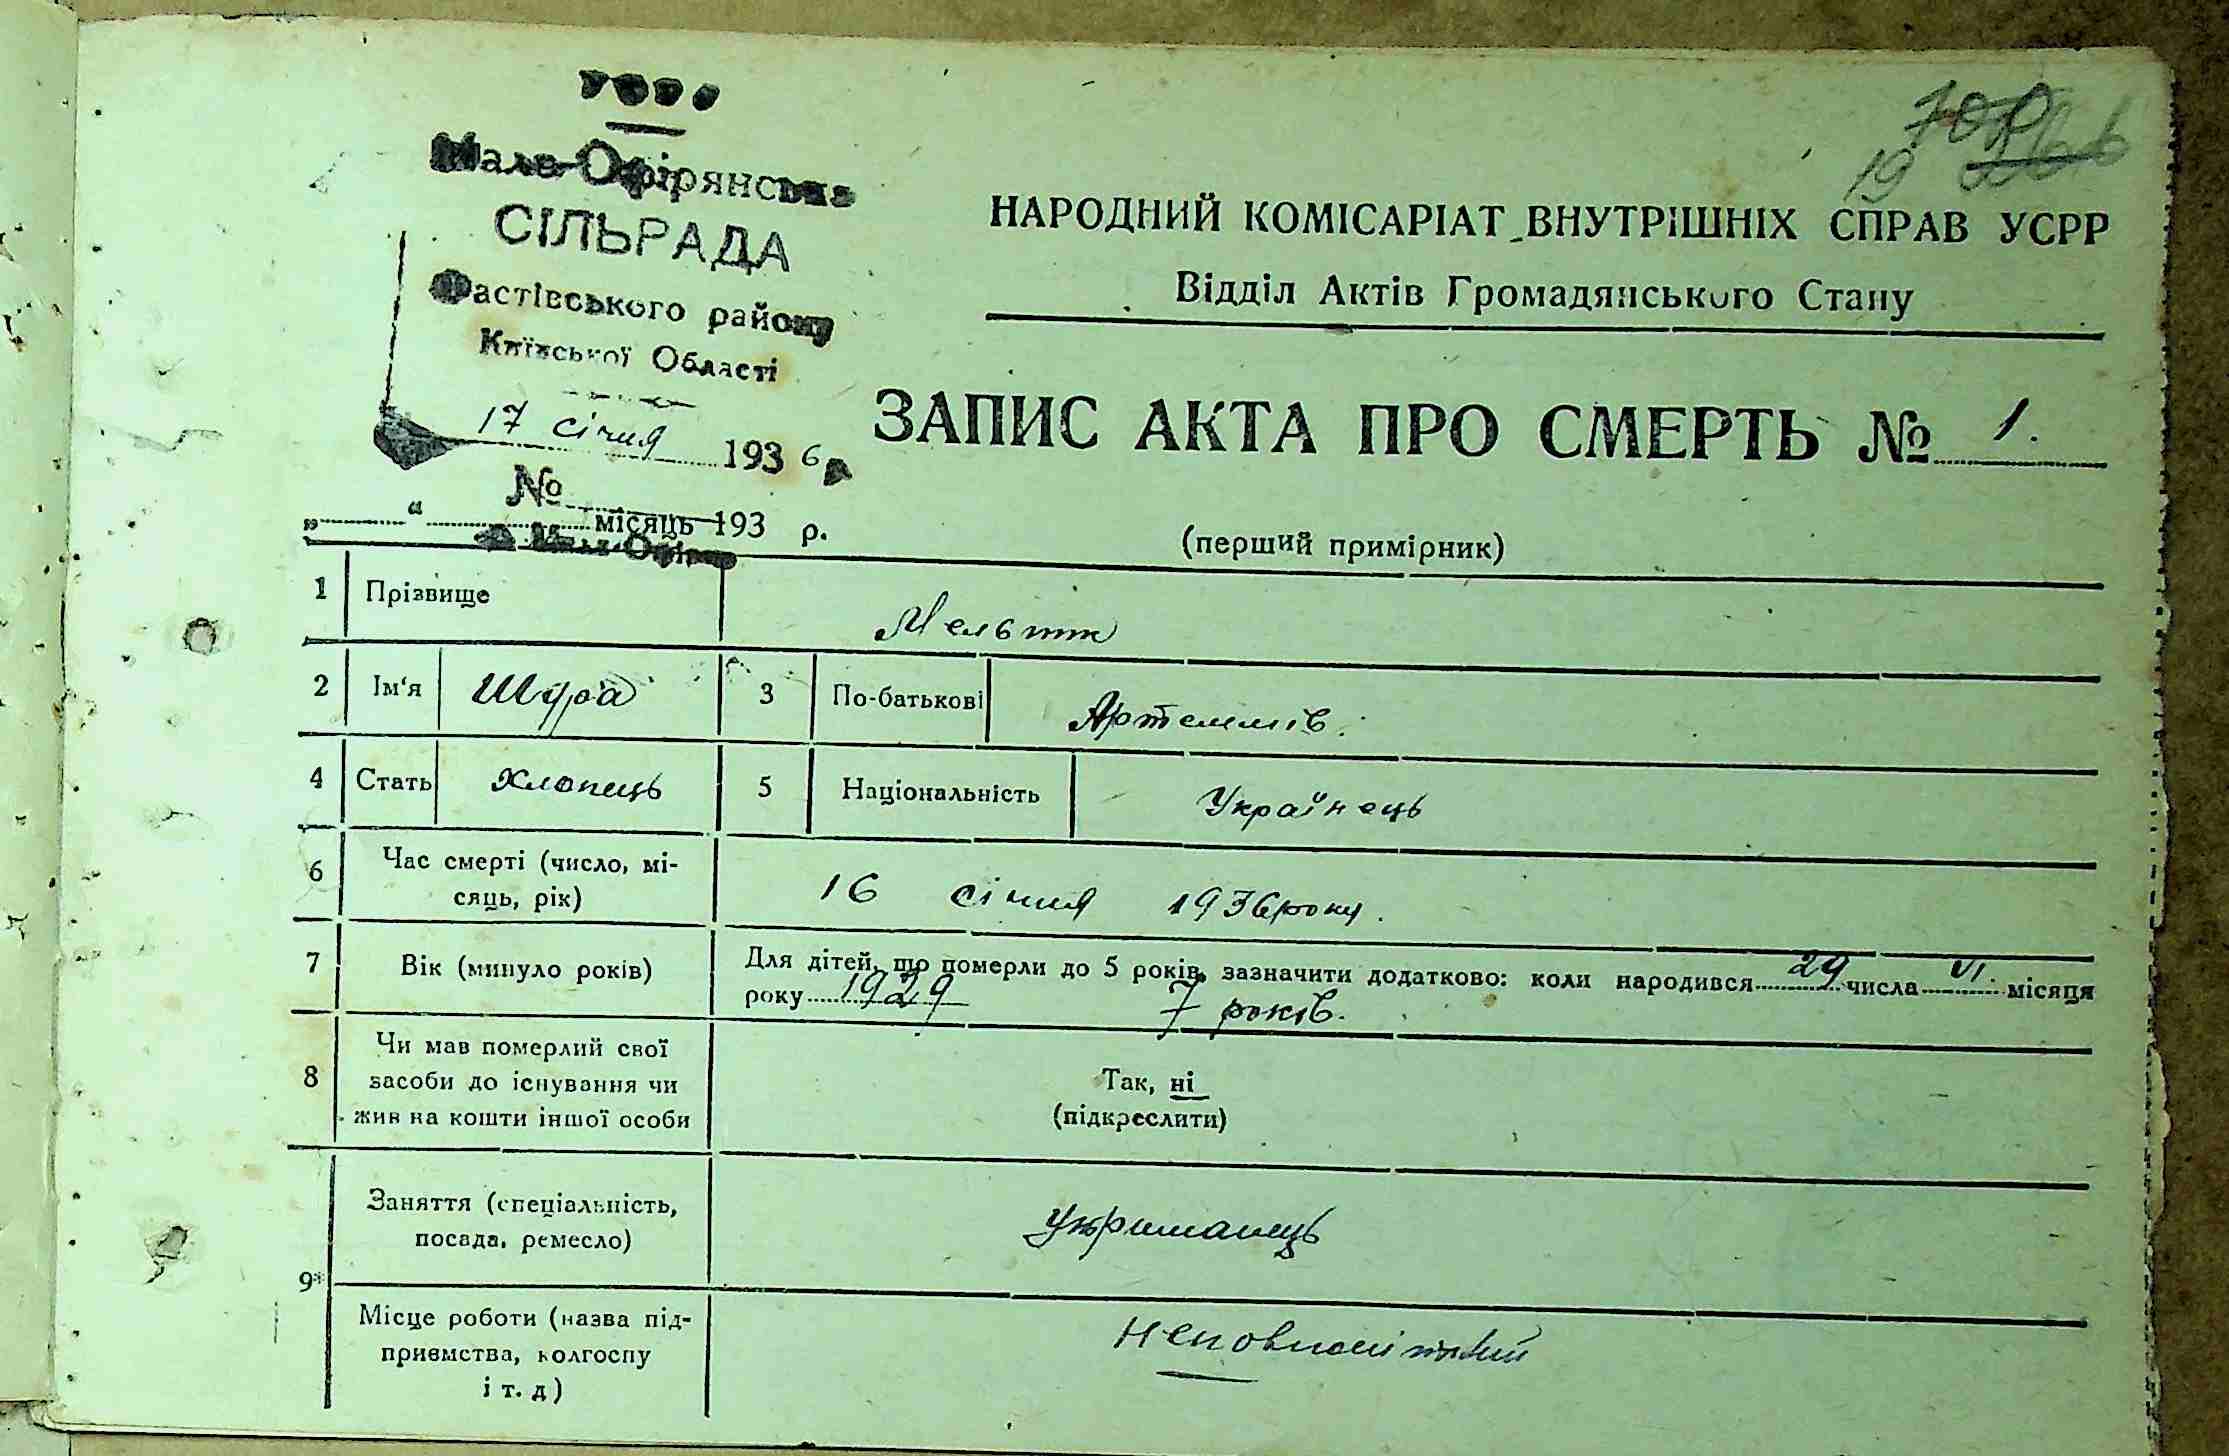 УСРР
Мало-Офірянська
СІЛЬРАДА
Фастівського району
Київської Області
17 січня 1936 р
№
19
НАРОДНИЙ КОМІСАРІАТ ВНУТРІШНІХ СПРАВ УСРР
Відділ Актів Громадянського Стану
ЗАПИС АКТА ПРО СМЕРТЬ № 1.
„ “ місяць 193 р.
(перший примірник)
1 Прізвище
2 Ім'я Шура 3 По-батькові Артемів.
4 Стать Хлопець 5 Національність Українець
6 Час смерті (число, мі-
сяць, рік) 16 січня 1936 року.
7 Вік (минуло років) Для дітей, що померли до 5 років, зазначити додатково: коли народився 29 числа VI. місяця
року 1929 7 років.
8 Чи мав померлий свої
засоби до існування чи
жив на кошти іншої особи
Так, ні
(підкреслити)
9* Заняття (спеціальність,
посада, ремесло) Утриманець
Місце роботи (назва під-
приємства, колгоспу
і т. д) Неповнолітний